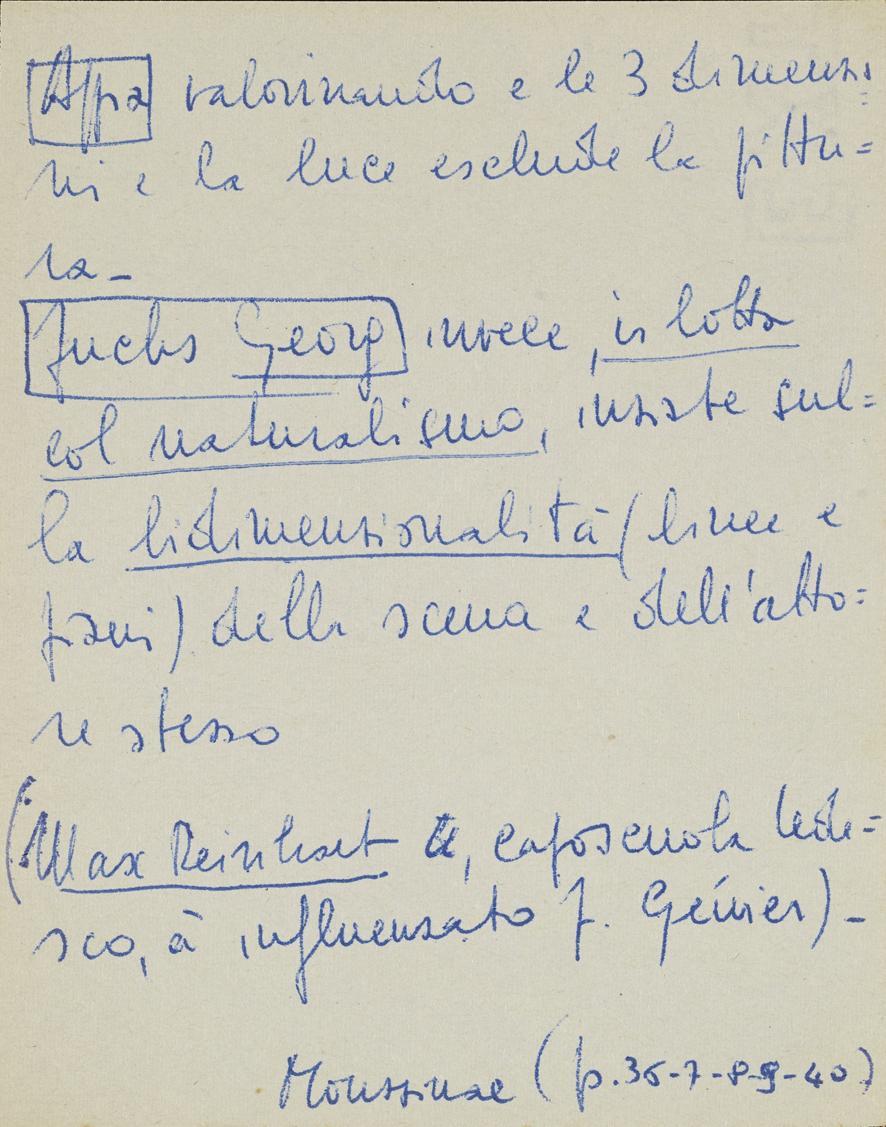 Appia valorizzando e le 3 dimensi=
ni e la luce esclude la pittu=
ra -
Fuchs Georg invece, in lotta
col naturalismo, insiste sul=
la bidimensionalità (linee e
piani) della scena e dell'atto=
re stesso
(Max Reinhart, caposcuola tede=
sco, à influenzato F. Gémier) -
Moussinac (p. 36-7-8-9-40)